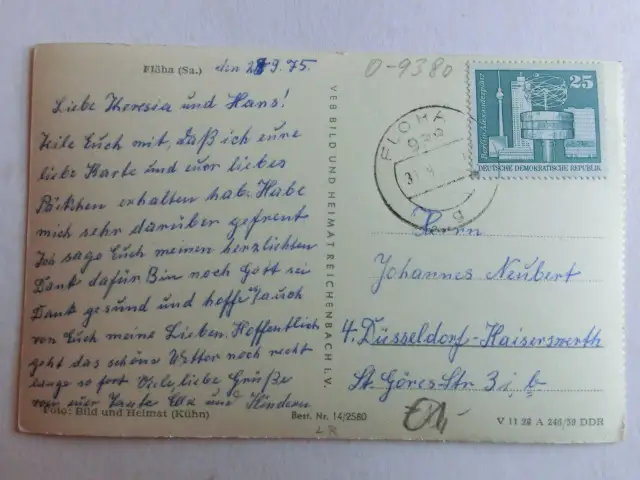 Flöha (Sa.) den 28.9.75.
O-9380
Liebe Theresia und Hans!
Teile Euch mit, daß ich eure
liebe Karte und euer liebes
Päckchen erhalten hab. Habe
mich sehr darüber gefreut
Ich sage Euch meinen herzlichsten
Dank dafür Bin noch Gott sei
Dank gesund und hoffe auch
von Euch meine Lieben. Hoffentlich
geht das schöne Wetter noch recht
lange so fort Viele liebe Grüße
von eurer Tante und Kindern
Foto: Bild und Heimat (Kühn)
Best. Nr. 14/2580
VEB BILD UND HEIMAT REICHENBACH I. V.
FLÖHA
25
Berlin, Alexanderplatz
DEUTSCHE DEMOKRATISCHE REPUBLIK
Herrn
Johannes Neubert
4. Düsseldorf-Kaiserswerth
St. Göres-Str. 3
V 11 28 A 246/59 DDR